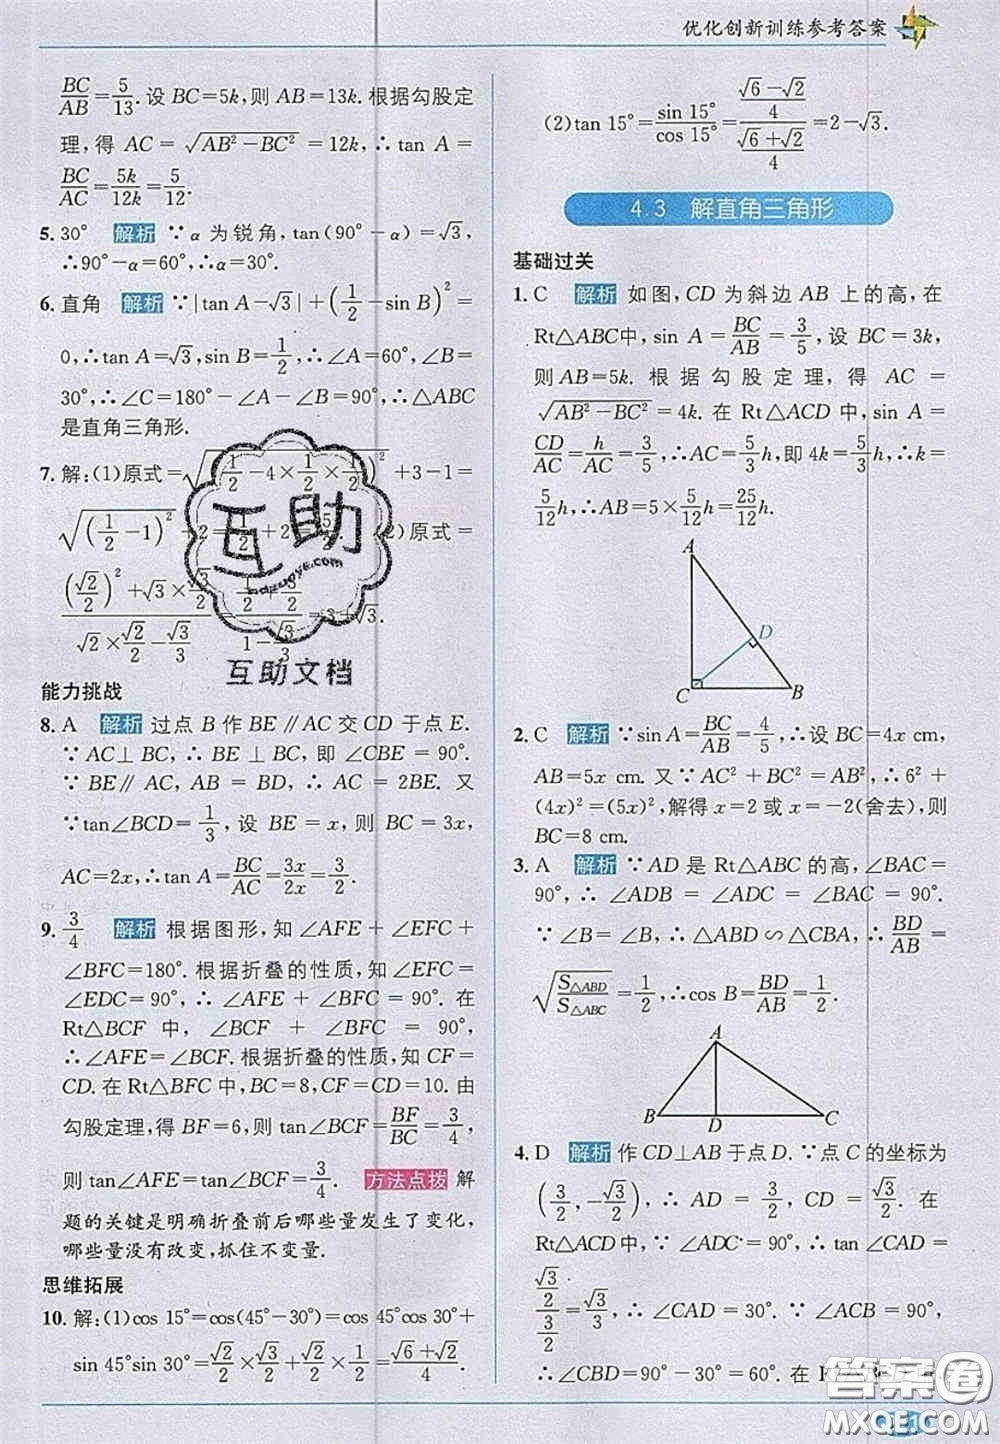 优化创新训练参考答案
BC/AB=5/13.设 BC=5k,则 AB=13k.根据勾股定
理,得 AC=√(AB²−BC²)=12k,∴tan A=
BC/AC=5k/12k=5/12.
5.30° 解析 ∵α 为锐角,tan(90°−α)=√3,
∴90°−α=60°,∴α=30°.
6.直角 解析 ∵|tan A−√3|+(1/2−sin B)²=
0,∴tan A=√3,sin B=1/2,∴∠A=60°,∠B=
30°,∴∠C=180°−∠A−∠B=90°,∴△ABC
是直角三角形.
7.解:(1)原式=√(1/2−4×1/2×1/2)²+3−1=
√(1/2−1)²+2=1/2+2=5/2. (2)原式=
((√2/2)²+√3×√3/2)/(√2×√2/2−√3/3)=(1/2+3/2)/(1−√3/3)=3+√3.
能力挑战
8.A 解析 过点 B 作 BE∥AC 交 CD 于点 E.
∵ AC⊥BC,∴ BE⊥BC,即∠CBE=90°.
∵ BE∥AC,AB=BD,∴ AC=2BE.又
∵tan∠BCD=1/3,设 BE=x,则 BC=3x,
AC=2x,∴tan A=BC/AC=3x/2x=3/2.
9.3/4 解析 根据图形,知∠AFE+∠EFC+
∠BFC=180°.根据折叠的性质,知∠EFC=
∠EDC=90°,∴∠AFE+∠BFC=90°.在
Rt△BCF 中,∠BCF+∠BFC=90°,
∴∠AFE=∠BCF.根据折叠的性质,知 CF=
CD.在 Rt△BFC 中,BC=8,CF=CD=10.由
勾股定理,得 BF=6,则 tan∠BCF=BF/BC=3/4,
则 tan∠AFE=tan∠BCF=3/4. 方法点拨 解
题的关键是明确折叠前后哪些量发生了变化,
哪些量没有改变,抓住不变量.
思维拓展
10.解:(1)cos 15°=cos(45°−30°)=cos 45°cos 30°+
sin 45°sin 30°=√2/2×√3/2+√2/2×1/2=(√6+√2)/4.
(2)tan 15°=sin 15°/cos 15°=((√6−√2)/4)/((√6+√2)/4)=2−√3.
4.3 解直角三角形
基础过关
1.C 解析 如图,CD 为斜边 AB 上的高,在
Rt△ABC中,sin A=BC/AB=3/5,设 BC=3k,
则AB=5k.根据勾股定理,得 AC=
√(AB²−BC²)=4k.在 Rt△ACD 中,sin A=
CD/AC=h/AC=3/5,∴AC=5/3h,即 4k=5/3h,k=
5/12h,∴AB=5×5/12h=25/12h.
A
D
C
B
2.C 解析 ∵sin A=BC/AB=4/5,∴设 BC=4x cm,
AB=5x cm.又∵AC²+BC²=AB²,∴6²+
(4x)²=(5x)²,解得 x=2 或 x=−2(舍去),则
BC=8 cm.
3.A 解析 ∵AD 是 Rt△ABC 的高,∠BAC=
90°,∴∠ADB=∠ADC=∠BAC=90°.
∵∠B=∠B,∴△ABD∽△CBA,∴BD/AB=
√(S△ABD/S△ABC)=1/2,∴cos B=BD/AB=1/2.
A
B
D
C
4.D 解析 作 CD⊥AB 于点 D.∵点 C 的坐标为
(3/2,−√3/2),∴AD=3/2,CD=√3/2.在
Rt△ACD 中,∠ADC=90°,∴tan∠CAD=
(√3/2)/(3/2)=√3/3,∴∠CAD=30°.∵∠ACB=90°,
∴∠CBD=90°−30°=60°.在
互助
bdzuoye.com
互助文档
答案圈
MXQE.COM